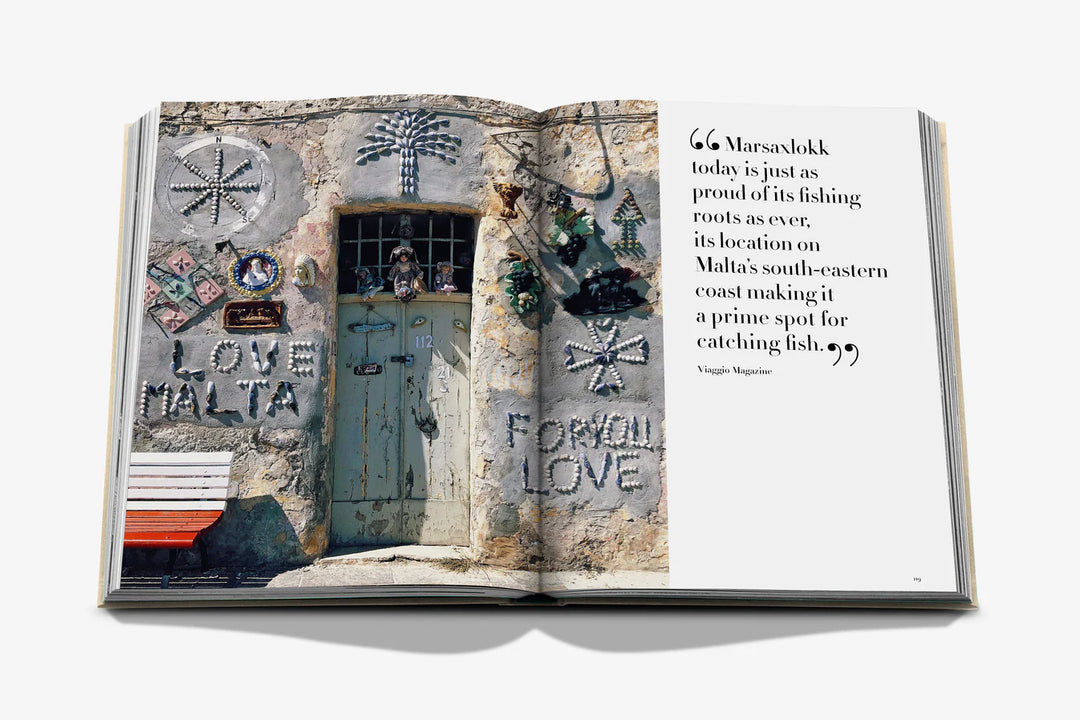 N
S
LOVE
MALTA
112
FOR YOU
LOVE
“Marsaxlokk
today is just as
proud of its fishing
roots as ever,
its location on
Malta's south-eastern
coast making it
a prime spot for
catching fish.”
Viaggio Magazine
119